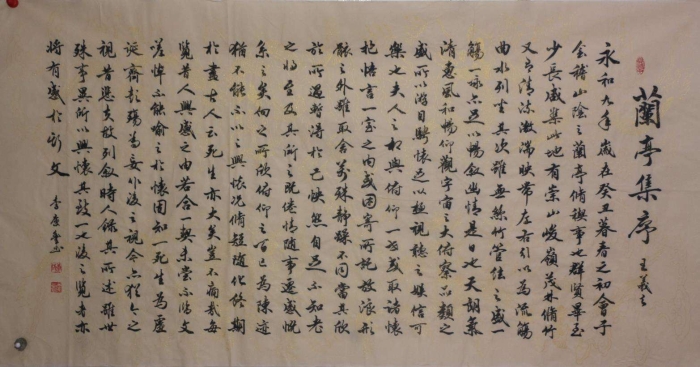 蘭亭集序
王羲之
永和九年歲在癸丑暮春之初會于
會稽山陰之蘭亭脩禊事也群賢畢至
少長咸集此地有崇山峻嶺茂林脩竹
又有清流激湍映帶左右引以為流觴
曲水列坐其次雖無絲竹管弦之盛一
觴一詠亦足以暢敘幽情是日也天朗氣
清惠風和暢仰觀宇宙之大俯察品類之
盛所以遊目騁懷足以極視聽之娛信可
樂也夫人之相與俯仰一世或取諸懷
抱悟言一室之內或因寄所託放浪形
骸之外雖取舍萬殊靜躁不同當其欣
於所遇暫得於己快然自足不知老
之將至及其所之既倦情隨事遷感慨
係之矣向之所欣俯仰之間已為陳迹
猶不能不以之興懷況脩短隨化終期
於盡古人云死生亦大矣豈不痛哉每
覽昔人興感之由若合一契未嘗不臨文
嗟悼不能喻之於懷固知一死生為虛
誕齊彭殤為妄作後之視今亦猶今之
視昔悲夫故列敘時人錄其所述雖世
殊事異所以興懷其致一也後之覽者亦
將有感於斯文